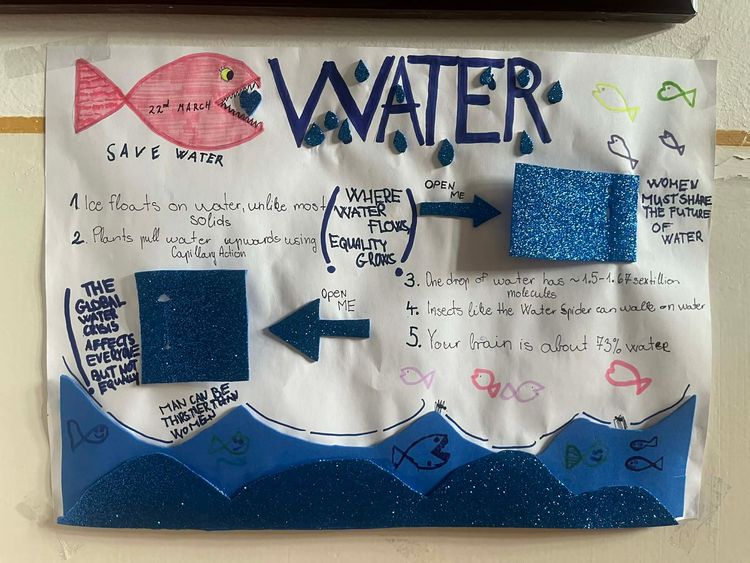 WATER
22nd MARCH
SAVE WATER
1. Ice floats on water, unlike most
solids
2. Plants pull water upwards using
Capillary Action
(WHERE
WATER
FLOWS,
EQUALITY
GROWS)
OPEN
ME
WOMEN
MUST SHARE
THE FUTURE
OF
WATER
3. One drop of water has ~1.5-1.67 sextillion
molecules
4. Insects like the Water Spider can walk on water
5. Your brain is about 73% water
OPEN
ME
THE
GLOBAL
WATER
CRISIS
AFFECTS
EVERYONE
BUT NOT
EQUALLY
MAN CAN BE
THIRSTIER THAN
WOMEN